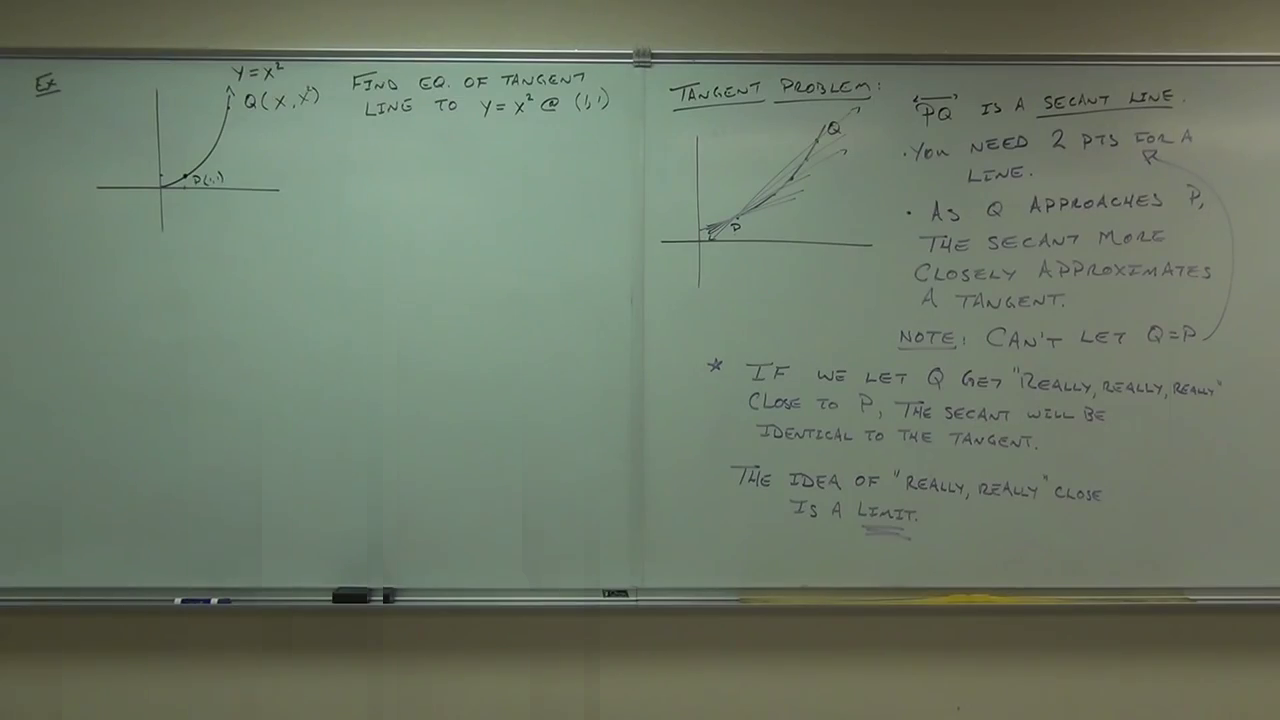 Ex
y = x²
Q(x, x²)
P(1,1)
FIND EQ. OF TANGENT
LINE TO y = x² @ (1,1)
TANGENT PROBLEM:
Q
P
PQ IS A SECANT LINE.
• YOU NEED 2 PTS FOR A
LINE.
• AS Q APPROACHES P,
THE SECANT MORE
CLOSELY APPROXIMATES
A TANGENT.
NOTE: CAN'T LET Q=P
* IF WE LET Q GET "REALLY, REALLY, REALLY"
CLOSE TO P, THE SECANT WILL BE
IDENTICAL TO THE TANGENT.
THE IDEA OF "REALLY, REALLY" CLOSE
IS A LIMIT.